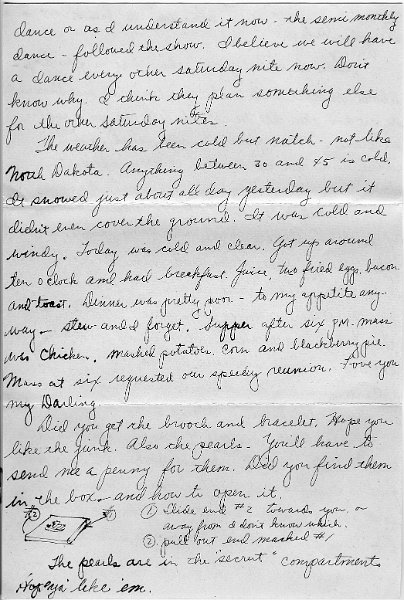 dance or as I understand it now - the semi monthly
dance - followed the show. I believe we will have
a dance every other saturday nite now. Don't
know why. I think they plan something else
for the other Saturday nites.
The weather has been cold but natch - not like
North Dakota. Anything between 30 and 45 is cold.
It snowed just about all day yesterday but it
didn't even cover the ground. It was cold and
windy. Today was cold and clear. Got up around
ten o'clock and had breakfast. Juice, two fried eggs, bacon
and toast. Dinner was pretty poor - to my appetite any-
way - stew and I forget. Supper after six P.M. mass
was Chicken, mashed potatoes, corn and blackberry pie.
Mass at six requested our speedy reunion. Love you
my Darling
Did you get the brooch and bracelet. Hope you
like the junk. Also the pearls - You'll have to
send me a penny for them. Did you find them
in the box - and how to open it.
#2 #1 ① Slide end #2 towards you or
away from I don't know which.
② pull out end marked #1
The pearls are in the "secret" compartment
Hope ya like 'em.